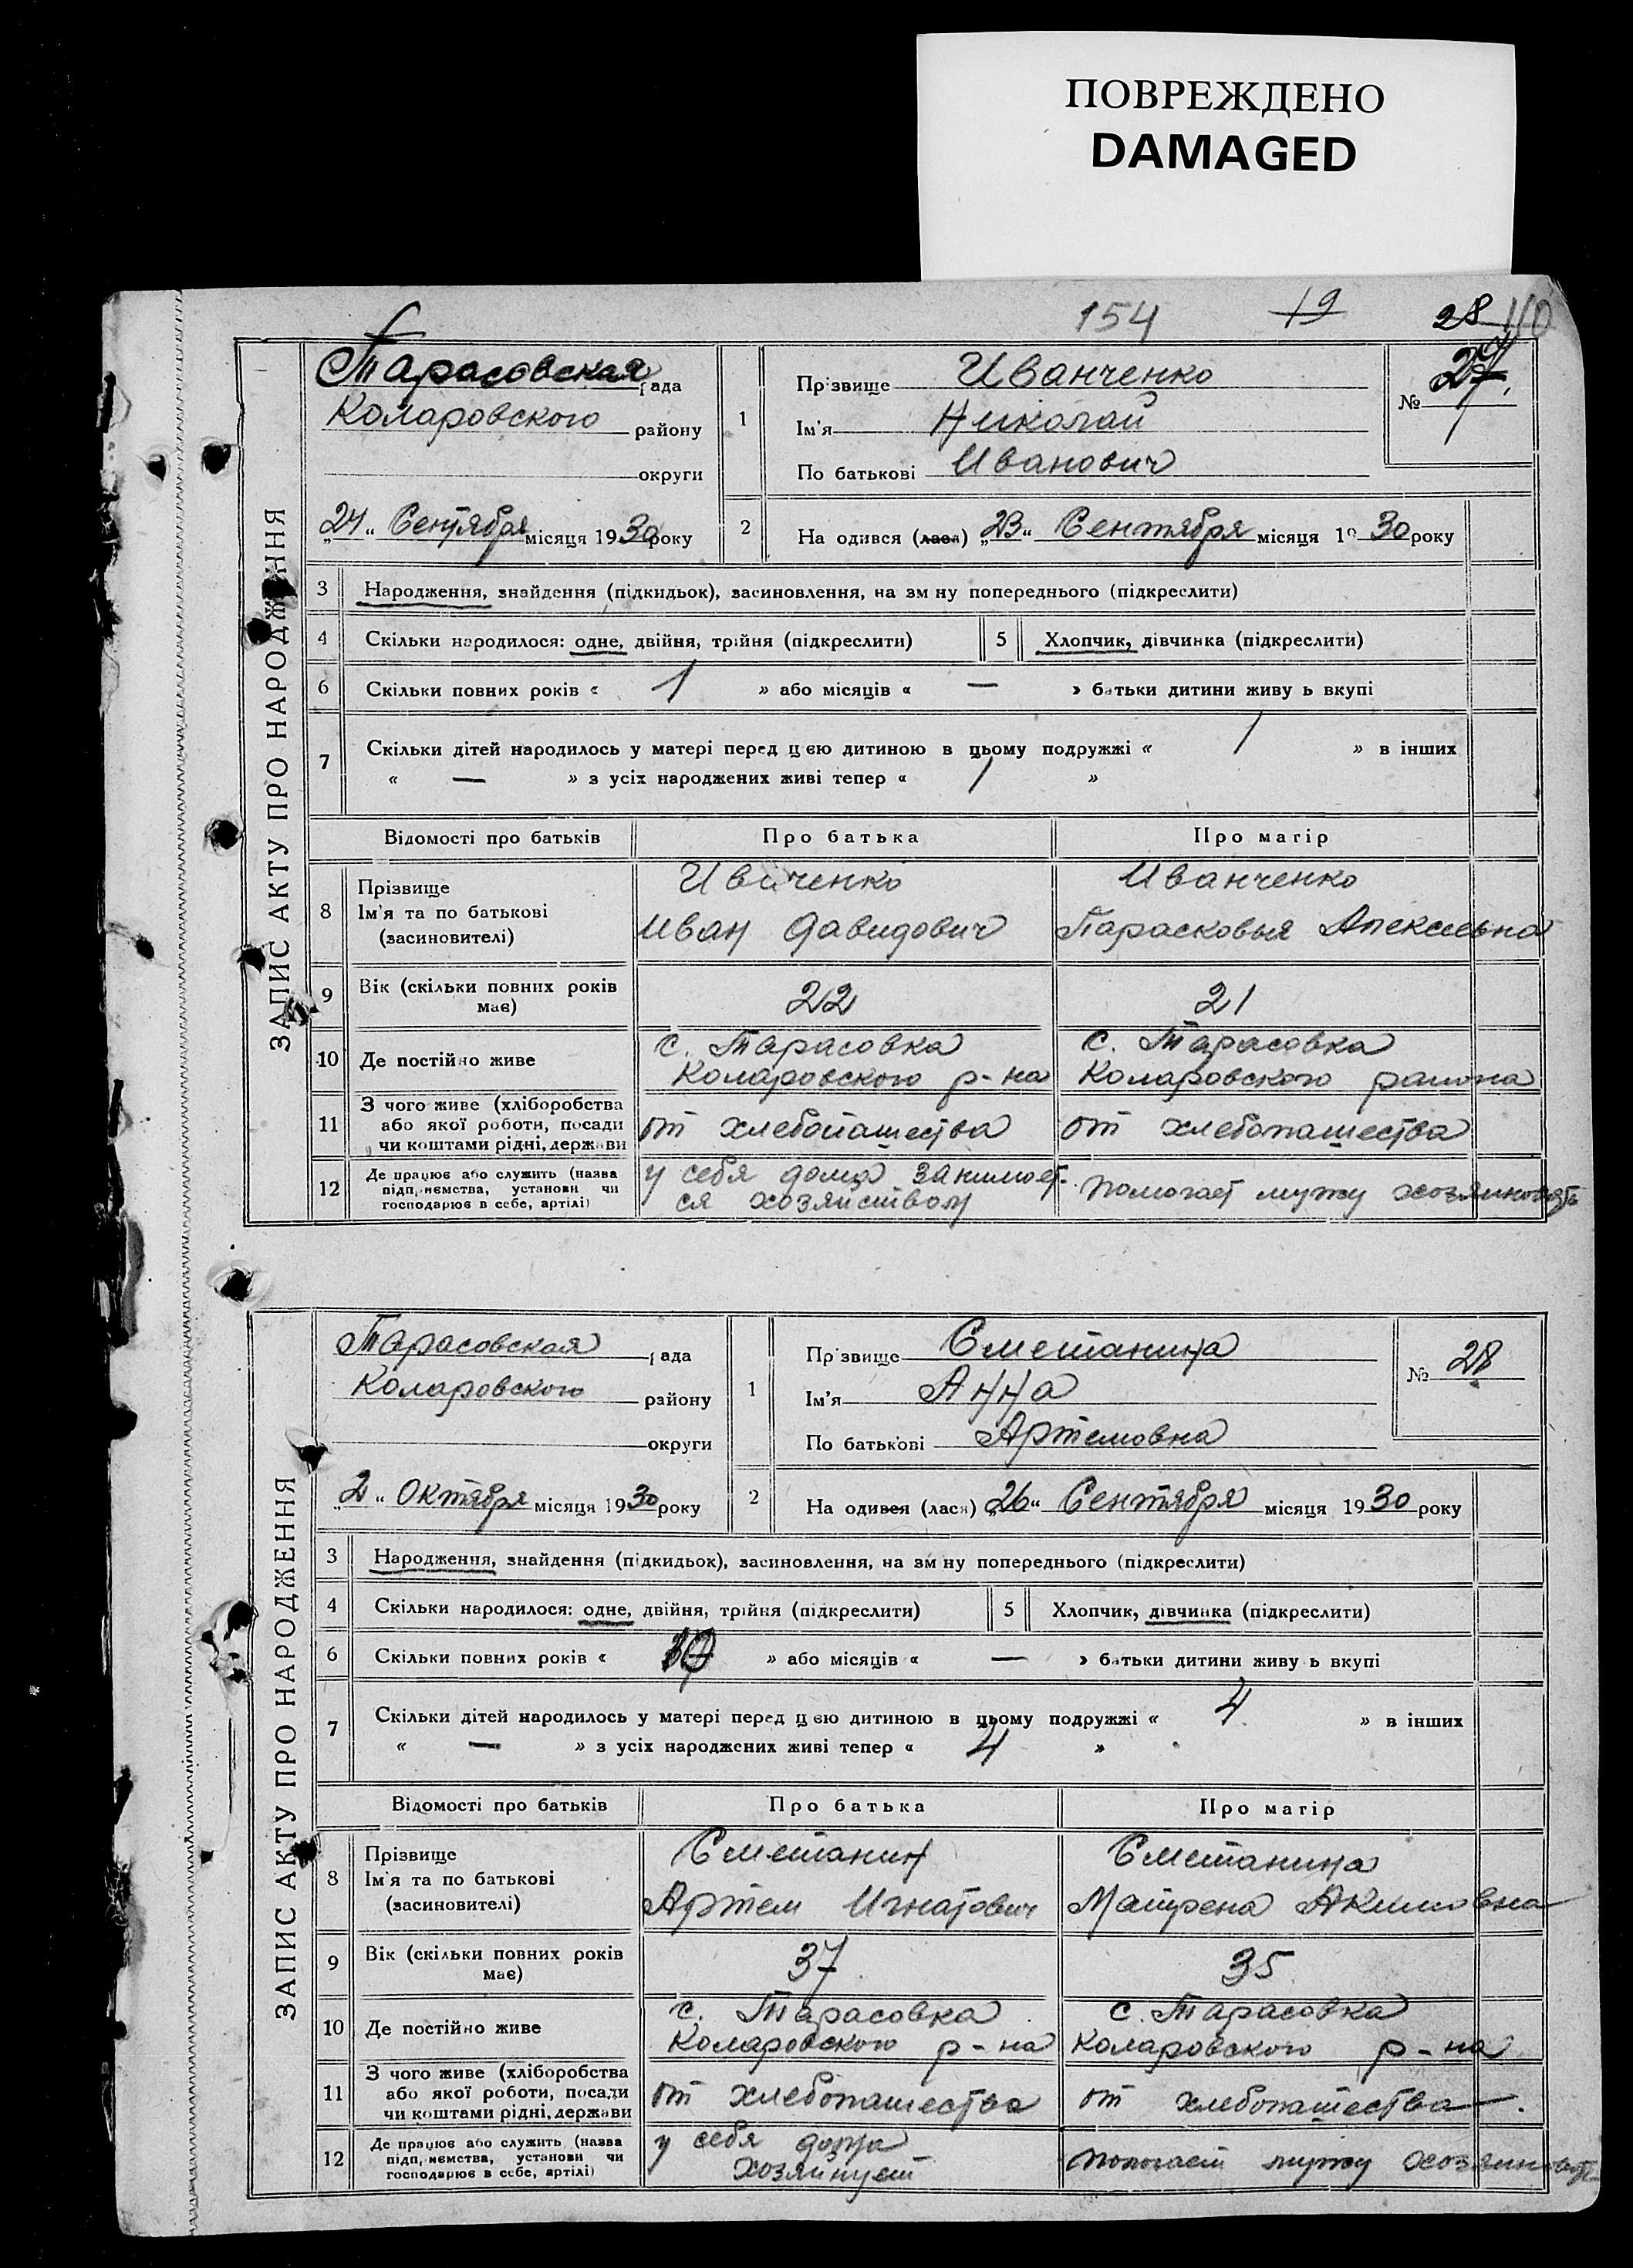 ПОВРЕЖДЕНО
DAMAGED
154 19 28 110
ЗАПИС АКТУ ПРО НАРОДЖЕННЯ
Тарасовская рада
Коларовского району
округи
„24“ Сентября місяця 1930 року
1 Прізвище Иванченко
Ім'я Николай
По батькові Иванович
№ 27
2 На одився (лася) „23“ Сентября місяця 1930 року
3 Народження, знайдення (підкидьок), засиновлення, на зм ну попереднього (підкреслити)
4 Скільки народилося: одне, двійня, трійня (підкреслити) 5 Хлопчик, дівчинка (підкреслити)
6 Скільки повних років « 1 » або місяців « — » батьки дитини живу ь вкупі
7 Скільки дітей народилось у матері перед цєю дитиною в цьому подружжі « 1 » в інших
« — » з усіх народжених живі тепер « 1 »
Відомості про батьків Про батька Про матір
8 Прізвище
Ім'я та по батькові
(засиновителі)
Иванченко
Иван Давидович
Иванченко
Парасковья Алексеевна
9 Вік (скільки повних років
має)
22 21
10 Де постійно живе
с. Тарасовка
Коларовского р-на
с. Тарасовка
Коларовского района
11 З чого живе (хліборобства
або якої роботи, посади
чи коштами рідні, держави
от хлебопашества от хлебопашества
12 Де працює або служить (назва
підп, иємства, установи чи
господарює в себе, артілі)
у себя дома занимает-
ся хозяйством
помогает мужу хозяиновать
ЗАПИС АКТУ ПРО НАРОДЖЕННЯ
Тарасовская рада
Коларовского району
округи
„2“ Октября місяця 1930 року
1 Прізвище Сметанина
Ім'я Анна
По батькові Артемовна
№ 28
2 На одився (лася) „26“ Сентября місяця 1930 року
3 Народження, знайдення (підкидьок), засиновлення, на зм ну попереднього (підкреслити)
4 Скільки народилося: одне, двійня, трійня (підкреслити) 5 Хлопчик, дівчинка (підкреслити)
6 Скільки повних років « » або місяців « — » батьки дитини живу ь вкупі
7 Скільки дітей народилось у матері перед цєю дитиною в цьому подружжі « 4 » в інших
« — » з усіх народжених живі тепер « 4 »
Відомості про батьків Про батька Про матір
8 Прізвище
Ім'я та по батькові
(засиновителі)
Сметанин
Артем Игнатович
Сметанина
Матрена Акимовна
9 Вік (скільки повних років
має)
37 35
10 Де постійно живе
с. Тарасовка
Коларовского р-на
с. Тарасовка
Коларовского р-на
11 З чого живе (хліборобства
або якої роботи, посади
чи коштами рідні, держави
от хлебопашества от хлебопашества
12 Де працює або служить (назва
підп, иємства, установи чи
господарює в себе, артілі)
у себя дома
хозяйнует
помогает мужу хозяиновать